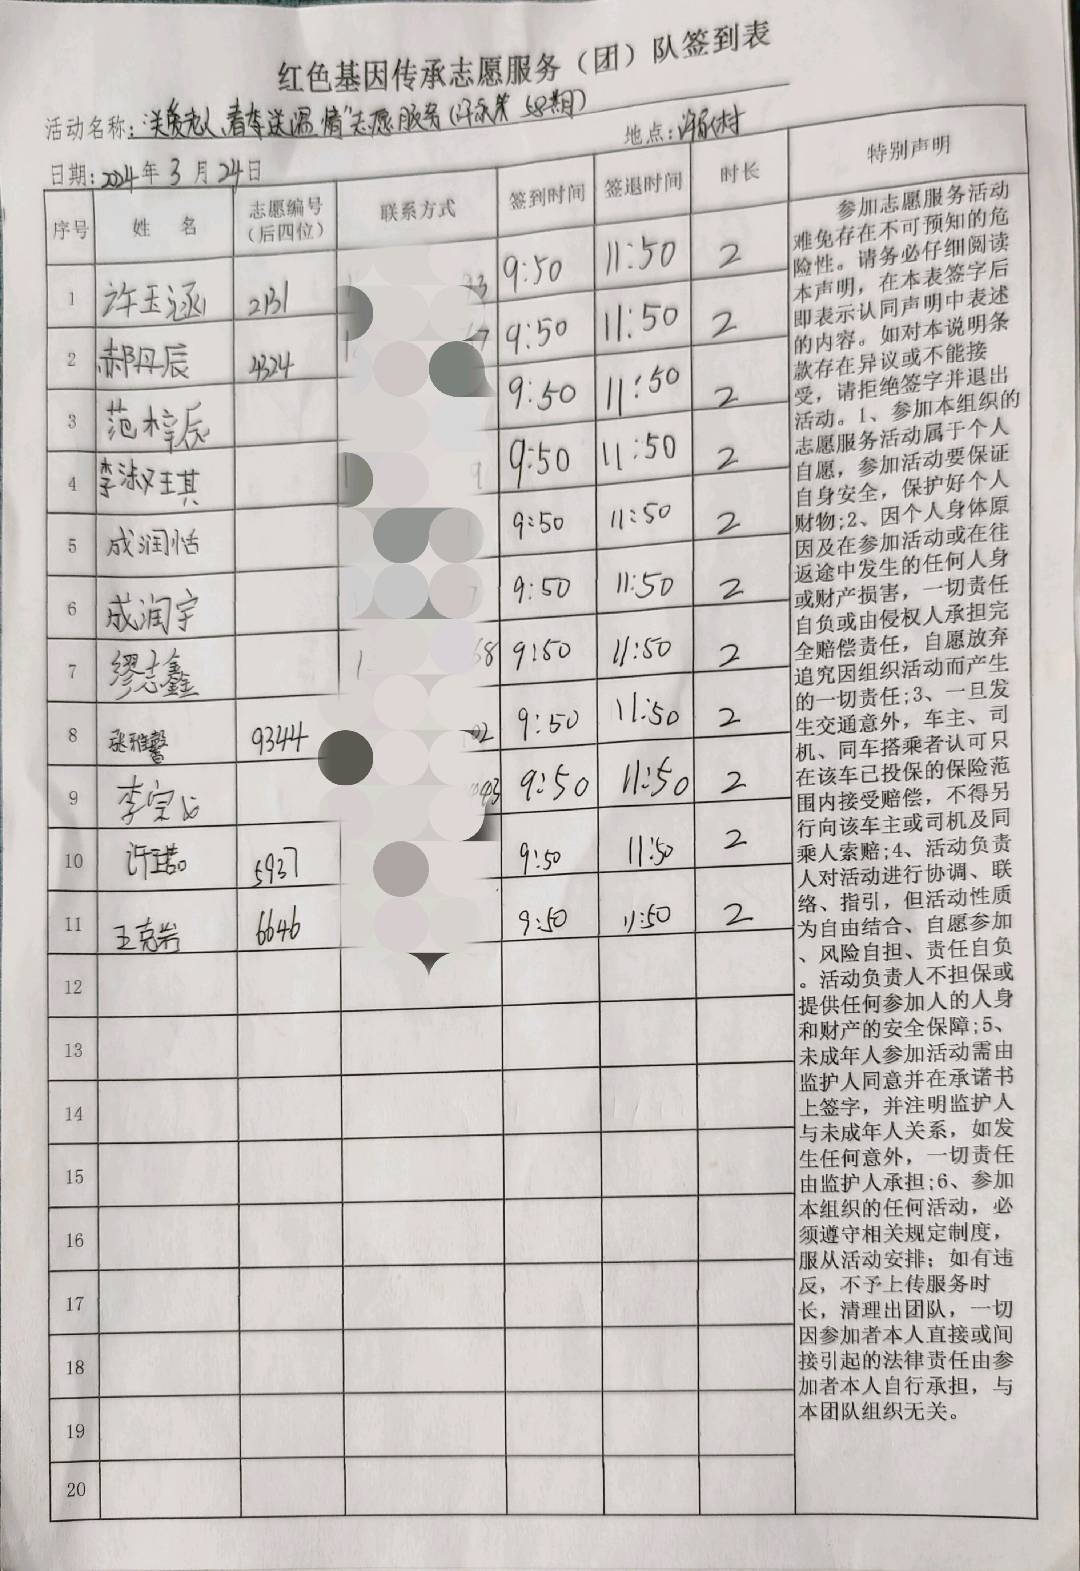 红色基因传承志愿服务（团）队签到表
活动名称:"关爱老人、春季送温情"志愿服务(许永第58期)
地点:
日期:2024年3月24日
序号 姓 名 志愿编号（后四位） 联系方式 签到时间 签退时间 时长 特别声明
1 许玉涵 2131 33 9:50 11:50 2
2 郝丹辰 4324 67 9:50 11:50 2
3 范梓辰 9:50 11:50 2
4 李淑琪 9 9:50 11:50 2
5 成润恬 9:50 11:50 2
6 成润宇 7 9:50 11:50 2
7 缪志鑫 1 68 9:50 11:50 2
8 张雅馨 9344 02 9:50 11:50 2
9 李宗 93 9:50 11:50 2
10 许珺 5937 9:50 11:50 2
11 王克岩 6646 9:50 11:50 2
12
13
14
15
16
17
18
19
20
参加志愿服务活动
难免存在不可预知的危
险性。请务必仔细阅读
本声明，在本表签字后
即表示认同声明中表述
的内容。如对本说明条
款存在异议或不能接
受，请拒绝签字并退出
活动。1、参加本组织的
志愿服务活动属于个人
自愿，参加活动要保证
自身安全，保护好个人
财物;2、因个人身体原
因及在参加活动或在往
返途中发生的任何人身
或财产损害，一切责任
自负或由侵权人承担完
全赔偿责任，自愿放弃
追究因组织活动而产生
的一切责任;3、一旦发
生交通意外，车主、司
机、同车搭乘者认可只
在该车已投保的保险范
围内接受赔偿，不得另
行向该车主或司机及同
乘人索赔;4、活动负责
人对活动进行协调、联
络、指引，但活动性质
为自由结合、自愿参加
、风险自担、责任自负
。活动负责人不担保或
提供任何参加人的人身
和财产的安全保障;5、
未成年人参加活动需由
监护人同意并在承诺书
上签字，并注明监护人
与未成年人关系，如发
生任何意外，一切责任
由监护人承担;6、参加
本组织的任何活动，必
须遵守相关规定制度，
服从活动安排；如有违
反，不予上传服务时
长，清理出团队，一切
因参加者本人直接或间
接引起的法律责任由参
加者本人自行承担，与
本团队组织无关。